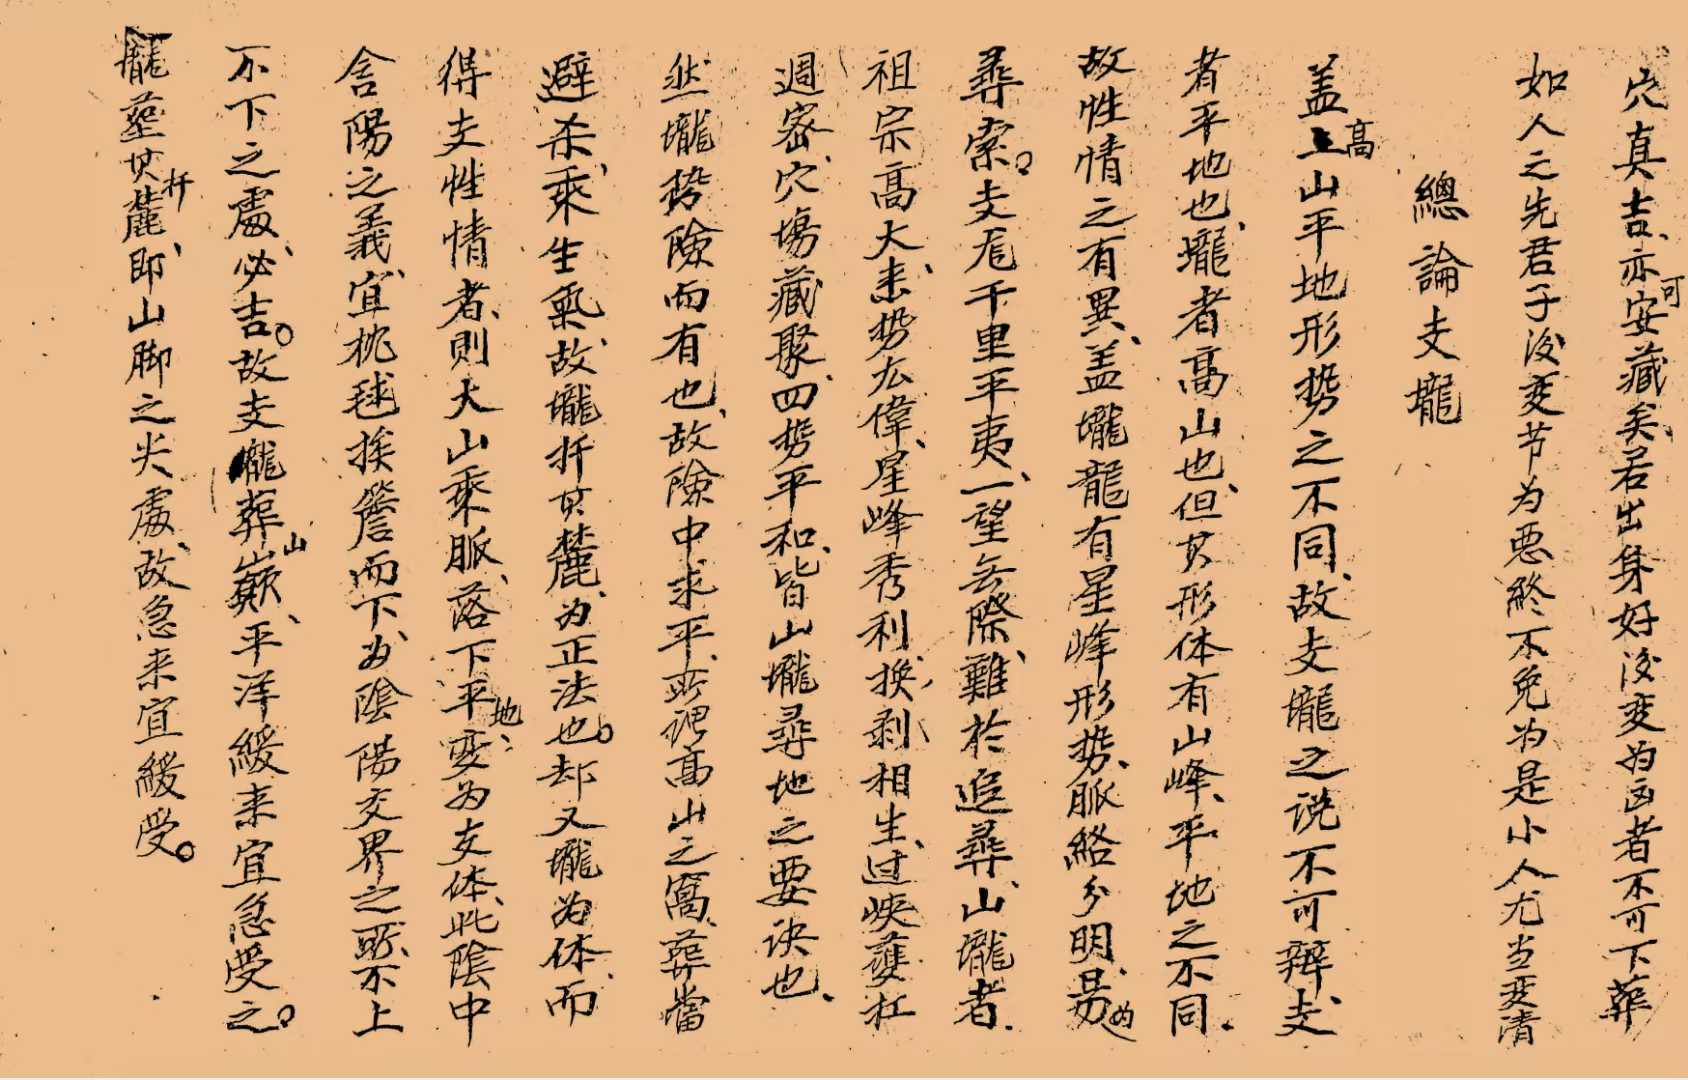 穴真吉、亦可安藏矣、若出身好後变为凶者不可下葬
如人之先君子後变节为恶終不免为是小人尤当变清
總論支壠
盖高山平地形势之不同、故支壠之说不可辩、支
者平地也、壠者高山也、但其形体有山峰、平地之不同、
故性情之有異、盖壠龍有星峰形势、脈絡分明、易为
尋索。支龙千里平夷、一望无際、難於追尋、山壠者、
祖宗高大、来势厷偉、星峰秀利、换剥相生、过峽護扛
週密、穴塲藏聚、四势平和、皆山壠尋地之要诀也、
然壠势險而有也、故險中求平、所谓高山之窩、葬當
避杀、乘生氣、故壠扦其麓、为正法也。却又壠为体、而
得支性情者、則大山乘脈、落下平地、变为支体、此陰中
含陽之義、宜枕毬挨簷而下、为陰陽交界之所、不上
不下之處、必吉。故支壠葬山巔、平洋緩来宜急受之。
龍葬扦其麓、即山脚之尖處、故急来宜緩受。